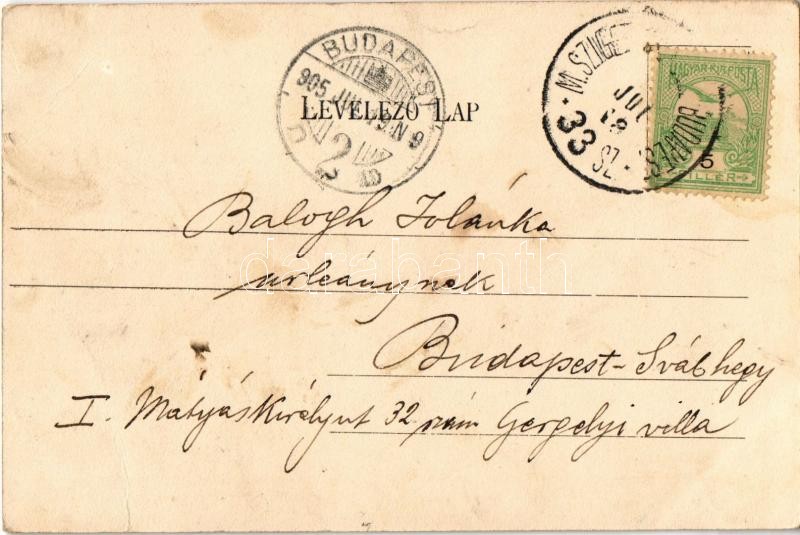 BUDAPEST
905 JUL
D 2
LEVELEZŐ LAP
M.SZIGET
JUL
33
MAGYAR KIR. POSTA
5
FILLÉR
Balogh Jolánka
úrleánynek
darabanth
Budapest-Svábhegy
I. Mátyás Király út 32 szám Gergelyi villa